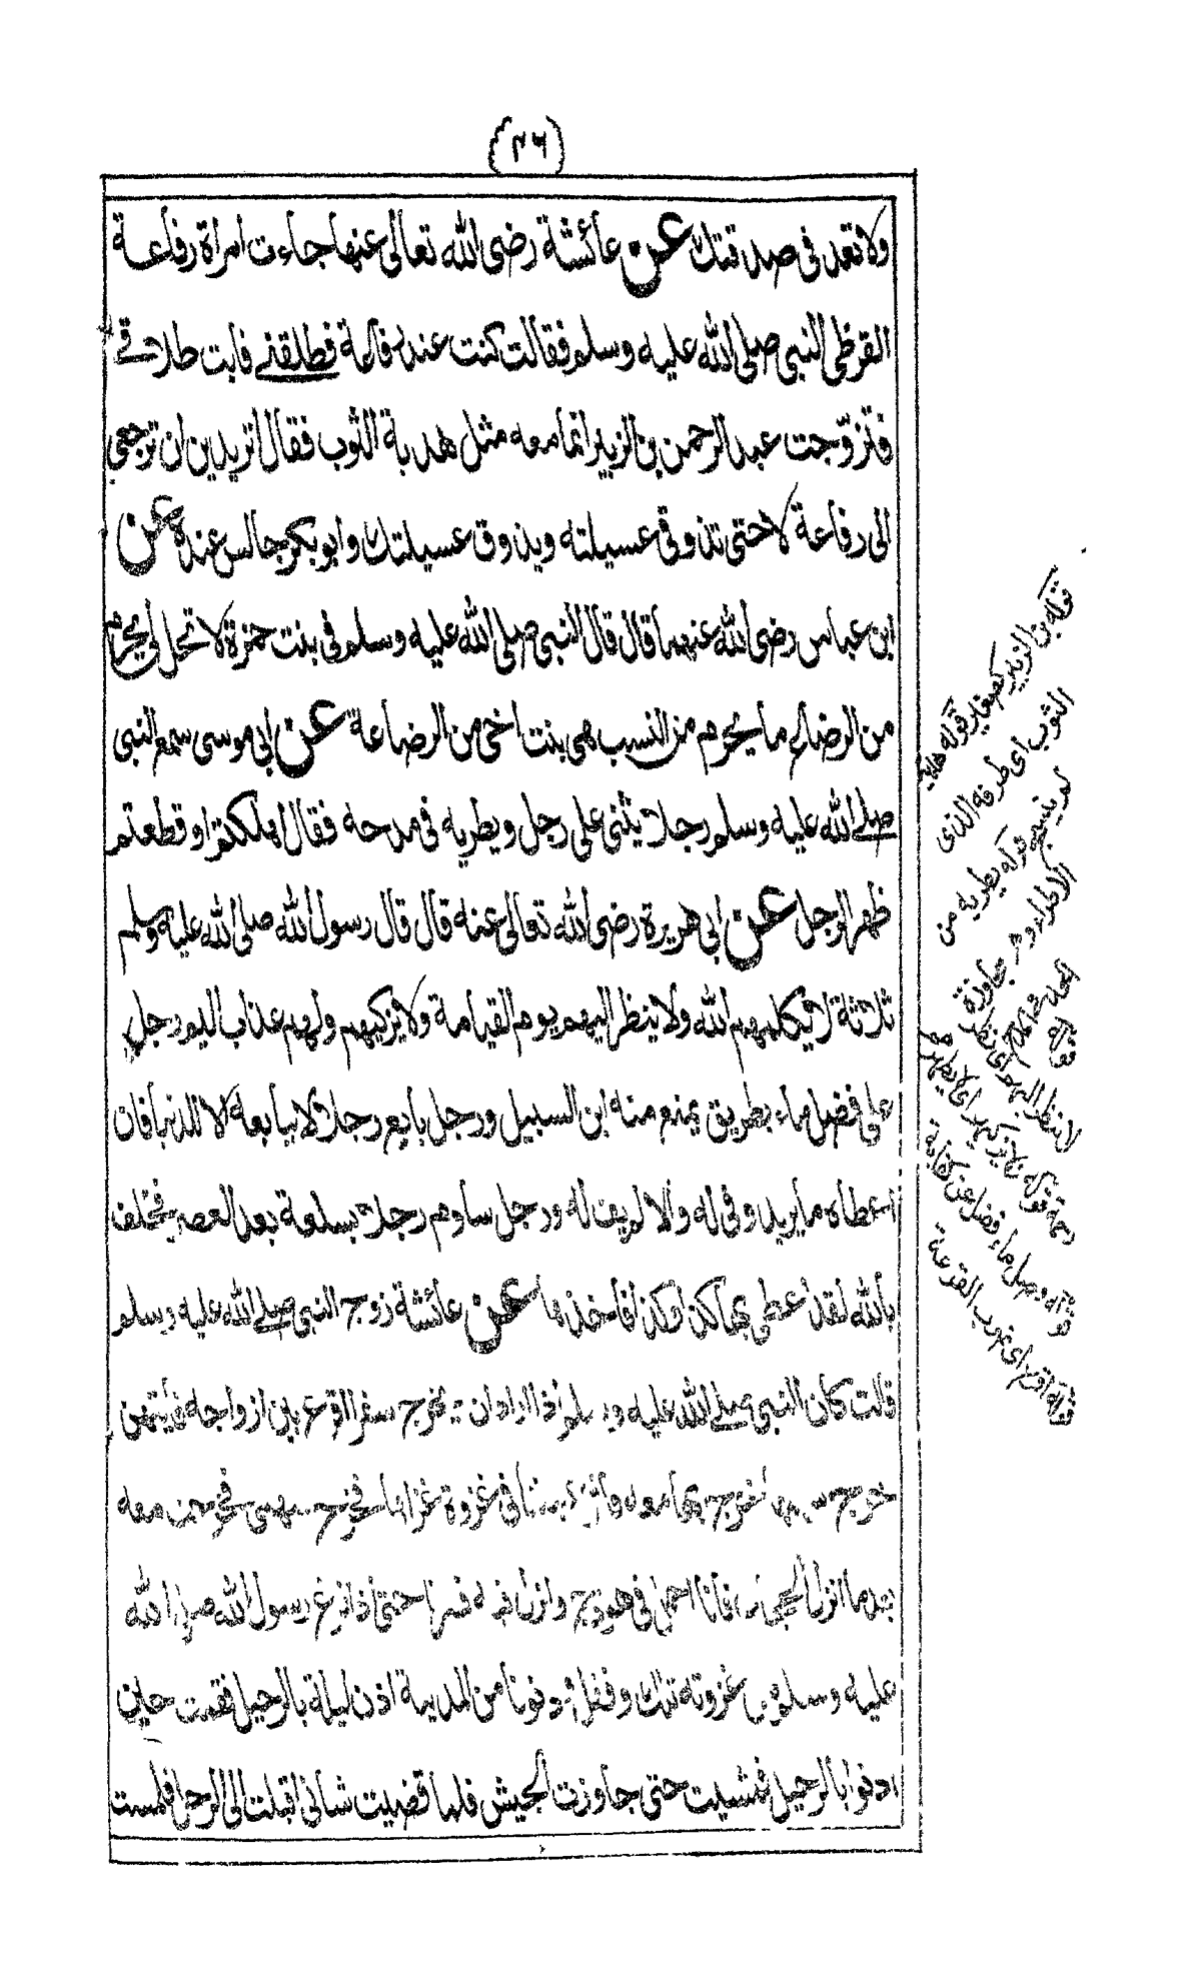 (٣٦)
ولا تعد فى صدقتك عن عائشة رضى الله تعالى عنها جاءت امراة رفاعة
القرظى النبى صلى الله عليه وسلم فقالت كنت عند رفاعة فطلقنے فابت طلاقے
فتزوّجت عبد الرحمن بن الزبير انما معه مثل هدبة الثوب فقال اتريدين ان ترجعى
الى رفاعة لا حتى تذوقى عسيلته ويذوق عسيلتك وابوبكر جالس عنده عن
ابن عباس رضى الله عنهما قال قال النبى صلى الله عليه وسلم فى بنت حمزة لا تحل لى يحرم
من الرضاع ما يحرم من النسب هى بنت اخى من الرضاعة عن ابى موسى سمع النبى
صلے الله عليه وسلم رجلا يثنى على رجل ويطريه فى مدحه فقال اهلكتم او قطعتم
ظهر الرجل عن ابى هريرة رضى الله تعالى عنه قال قال رسول الله صلى الله عليه وسلم
ثلاثة لا يكلمهم الله ولا ينظر اليهم يوم القيامة ولا يزكيهم ولهم عذاب اليم رجل
على فضل ماء بطريق يمنع منه ابن السبيل ورجل بايع رجلا لا يبايعه الا للدنيا فان
اعطاه ما يريد وفى له والا لم يف له ورجل ساوم رجلا بسلعة بعد العصر فحلف
بالله لقد اعطى بها كذا وكذا فاخذها عن عائشة زوج النبى صلے الله عليه وسلم
قالت كان النبى صلے الله عليه وسلم اذا اراد ان يخرج سفرا اقرع بين ازواجه فايتهن
خرج سهمها خرج بها معه فاقرع بيننا فى غزوة غزاها فخرج سهمى فخرجت معه
بعد ما انزل الحجاب فانا احمل فى هودج وانزل فيه فسرنا حتى اذا فرغ رسول الله صلى الله
عليه وسلم من غزوته تلك وقفل ودنونا من المدينة اذن ليلة بالرحيل فقمت حين
اذنوا بالرحيل فمشيت حتى جاوزت الجيش فلما قضيت شانى اقبلت الى الرحل فلمست
قوله بن الزبير كصغير قوله هدبة
الثوب اى طرفه الذى
لم ينسج قوله يطريه من
الاطراء وهو مجاوزة
الحد فى المدح
قوله لا ينظر اليهم اى نظر
رحمة قوله لا يزكيهم اى لا يطهرهم
قوله فضل ماء فضل عن كفاية
قوله اقرع اى ضرب القرعة